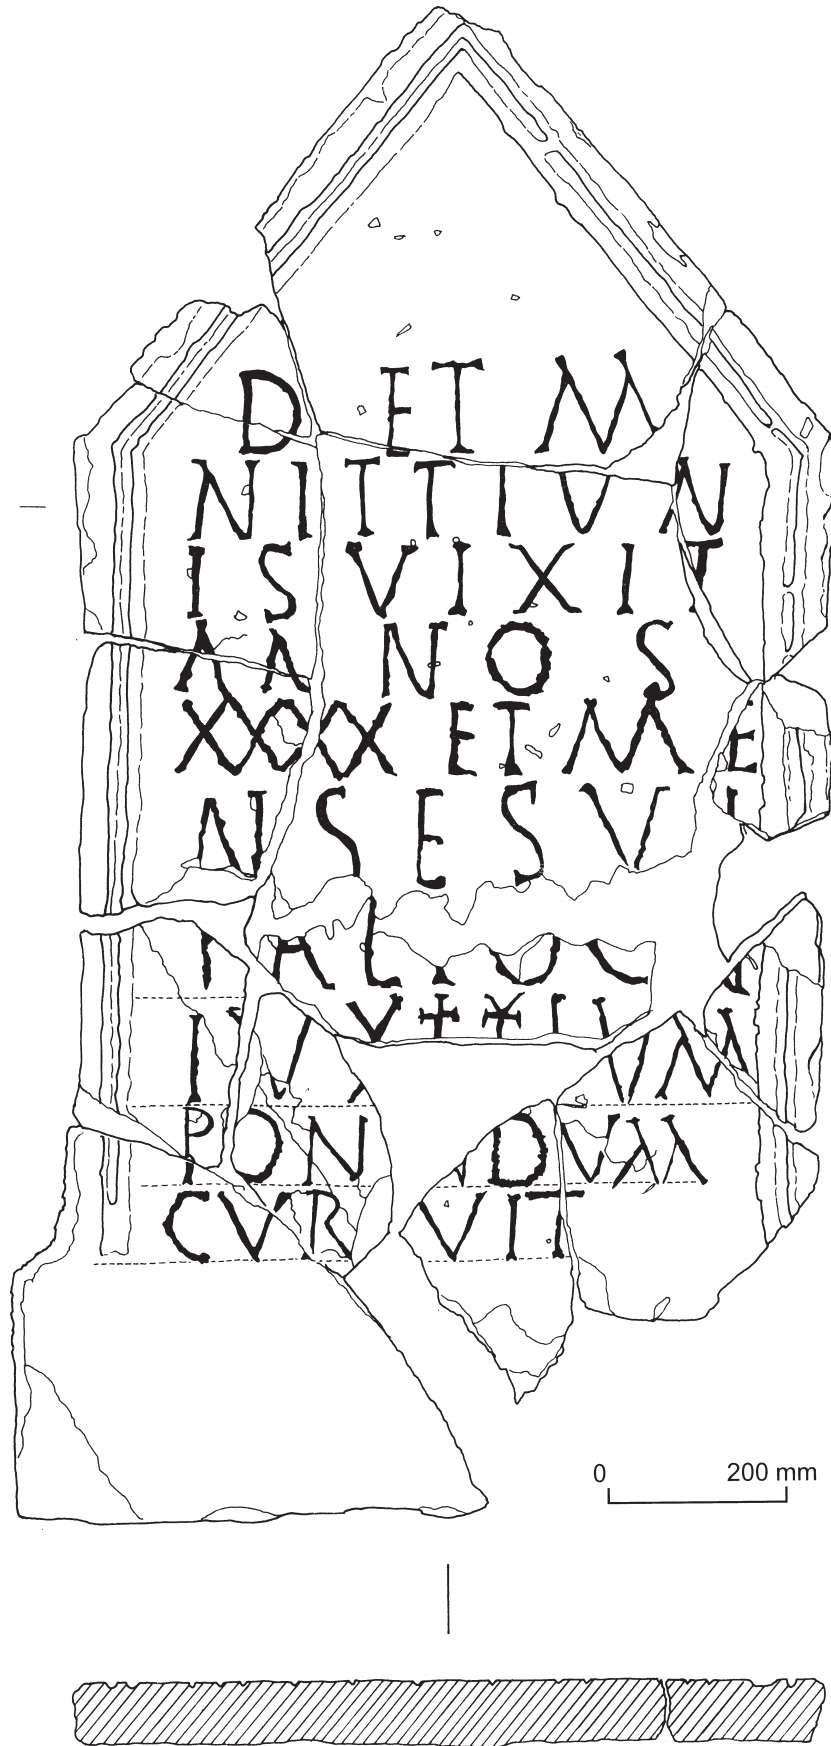 D ET M
NITTIVN
IS VIXIT
ANNOS
XXXX ET ME
NSES VI
VM
PON NDVM
CVR VIT
0 200 mm